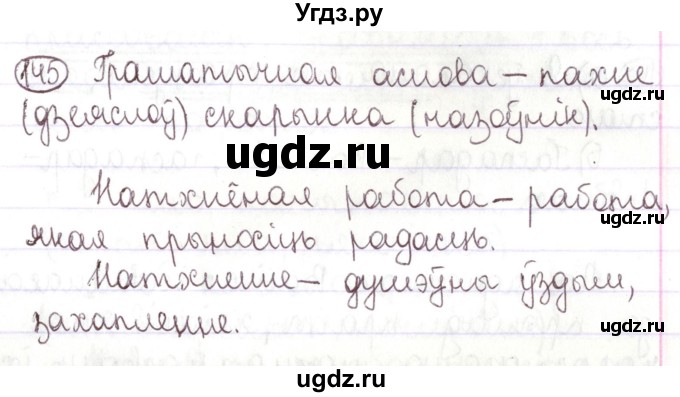 Угдз.ру
145 Граматычная аснова – пахне
(дзеяслоў) скарынка (назоўнік).
ugdz.ru
Натхнёная работа – работа,
ugdz.ru
якая прыносіць радасць.
Натхненне – душэўны ўздым,
захапленне.
ugdz.ru
ugdz.ru